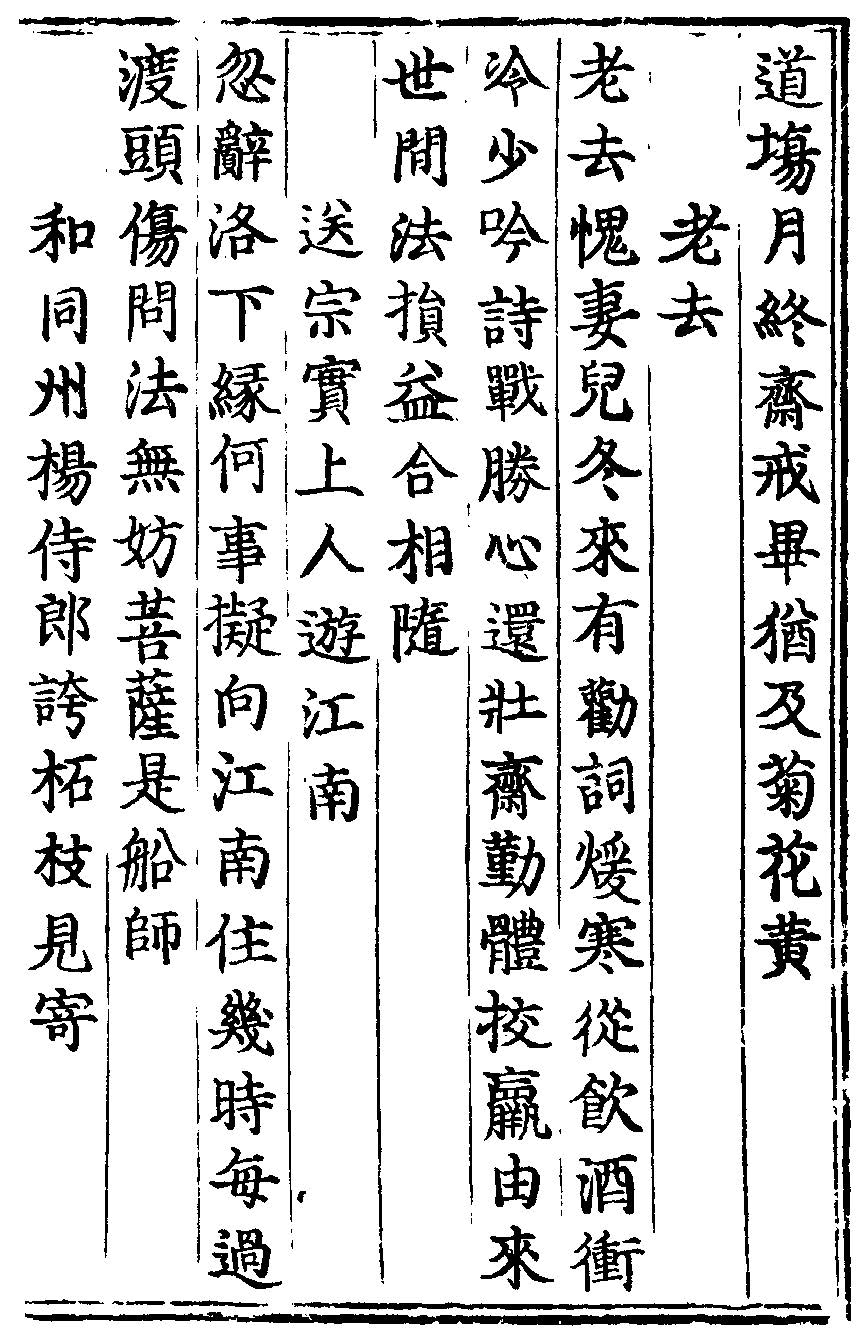 道塲月終齋戒畢猶及菊花黄
老去
老去愧妻兒冬來有勸詞煖寒從飲酒衝
冷少吟詩戰勝心還壯齋勤體挍羸由來
世間法損益合相隨
送宗實上人遊江南
忽辭洛下縁何事擬向江南住幾時每過
渡頭傷問法無妨菩薩是船師
和同州楊侍郎誇柘枝見寄